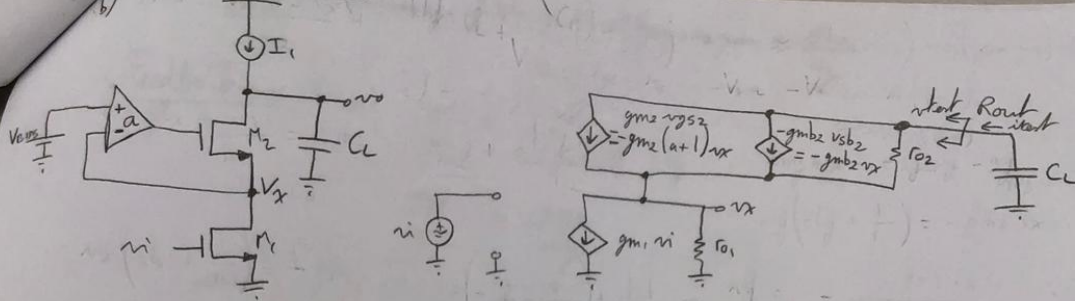 b)
I₁
vo
+
a
-
M₂
CL
Vx
vi
M₁
vi
gm2 vgs2
= -gm2 (a+1) vx
-gmb2 vsb2
= -gmb2 vx
ro2
vtest
Rout
itest
CL
vx
gm1 vi
ro1